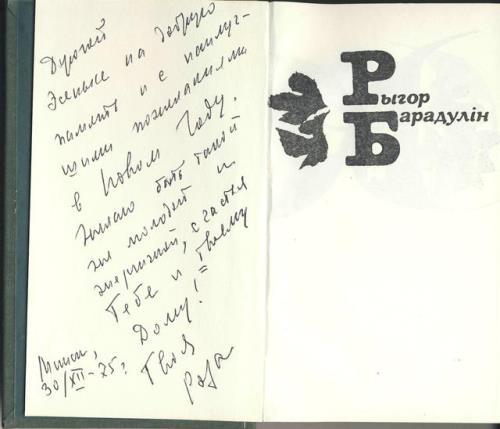 Дорогой
Женьке на добрую
память и с наилуч-
шими пожеланиями
в Новом Году.
Желаю быть такой
же молодой и
энергичной, счастья
Тебе и Твоему
Дому!
Минск,
30/XII-75г.
Твоя
Рыгор
Барадулін